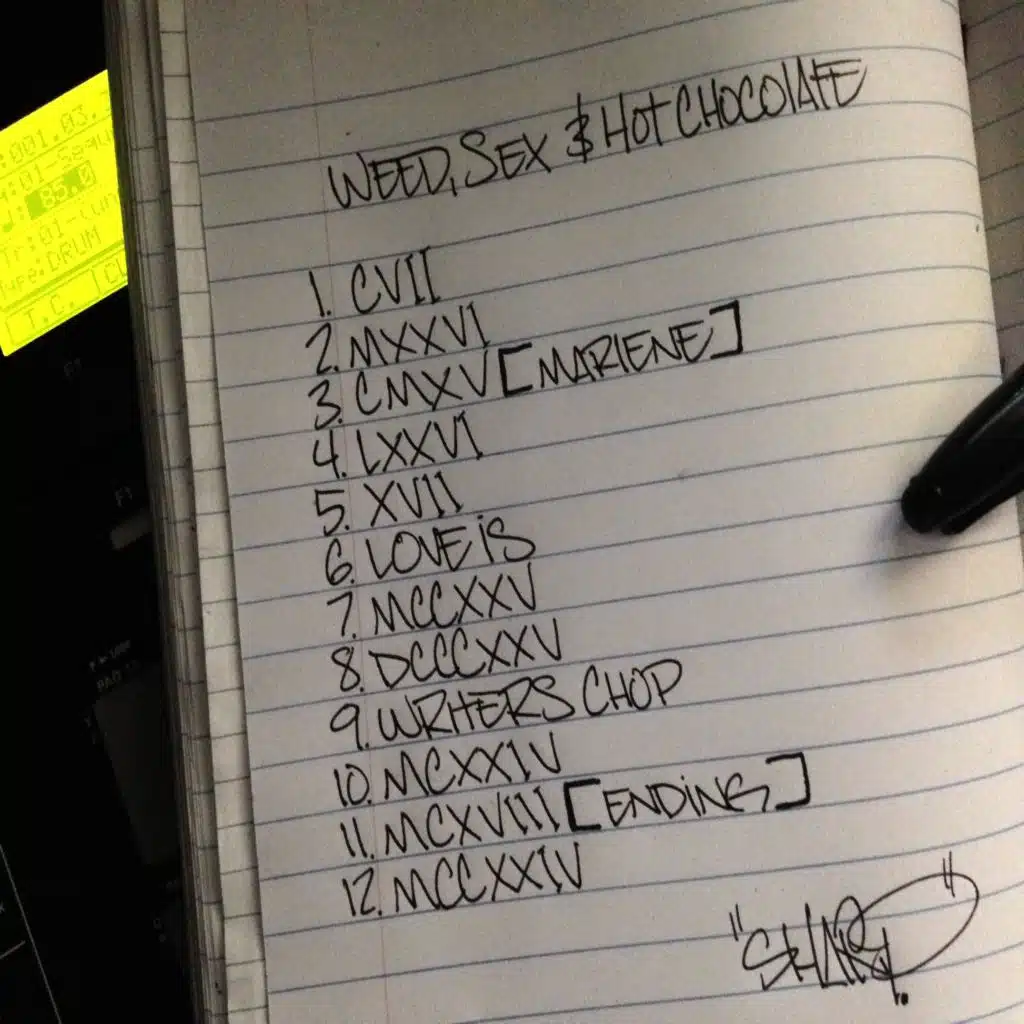 WEED, SEX & HOT CHOCOLATE
1. CVII
2. MXXVI
3. CMXV [MARLENE]
4. LXXVI
5. XVII
6. LOVE IS
7. MCCXXV
8. DCCCXXV
9. WRITERS CHOP
10. MCXXIV
11. MCXVIII [ENDING]
12. MCCXXIV
"SHARP."
:001.03.
85.0
Tr:01-
DRUM
T.C.
F1